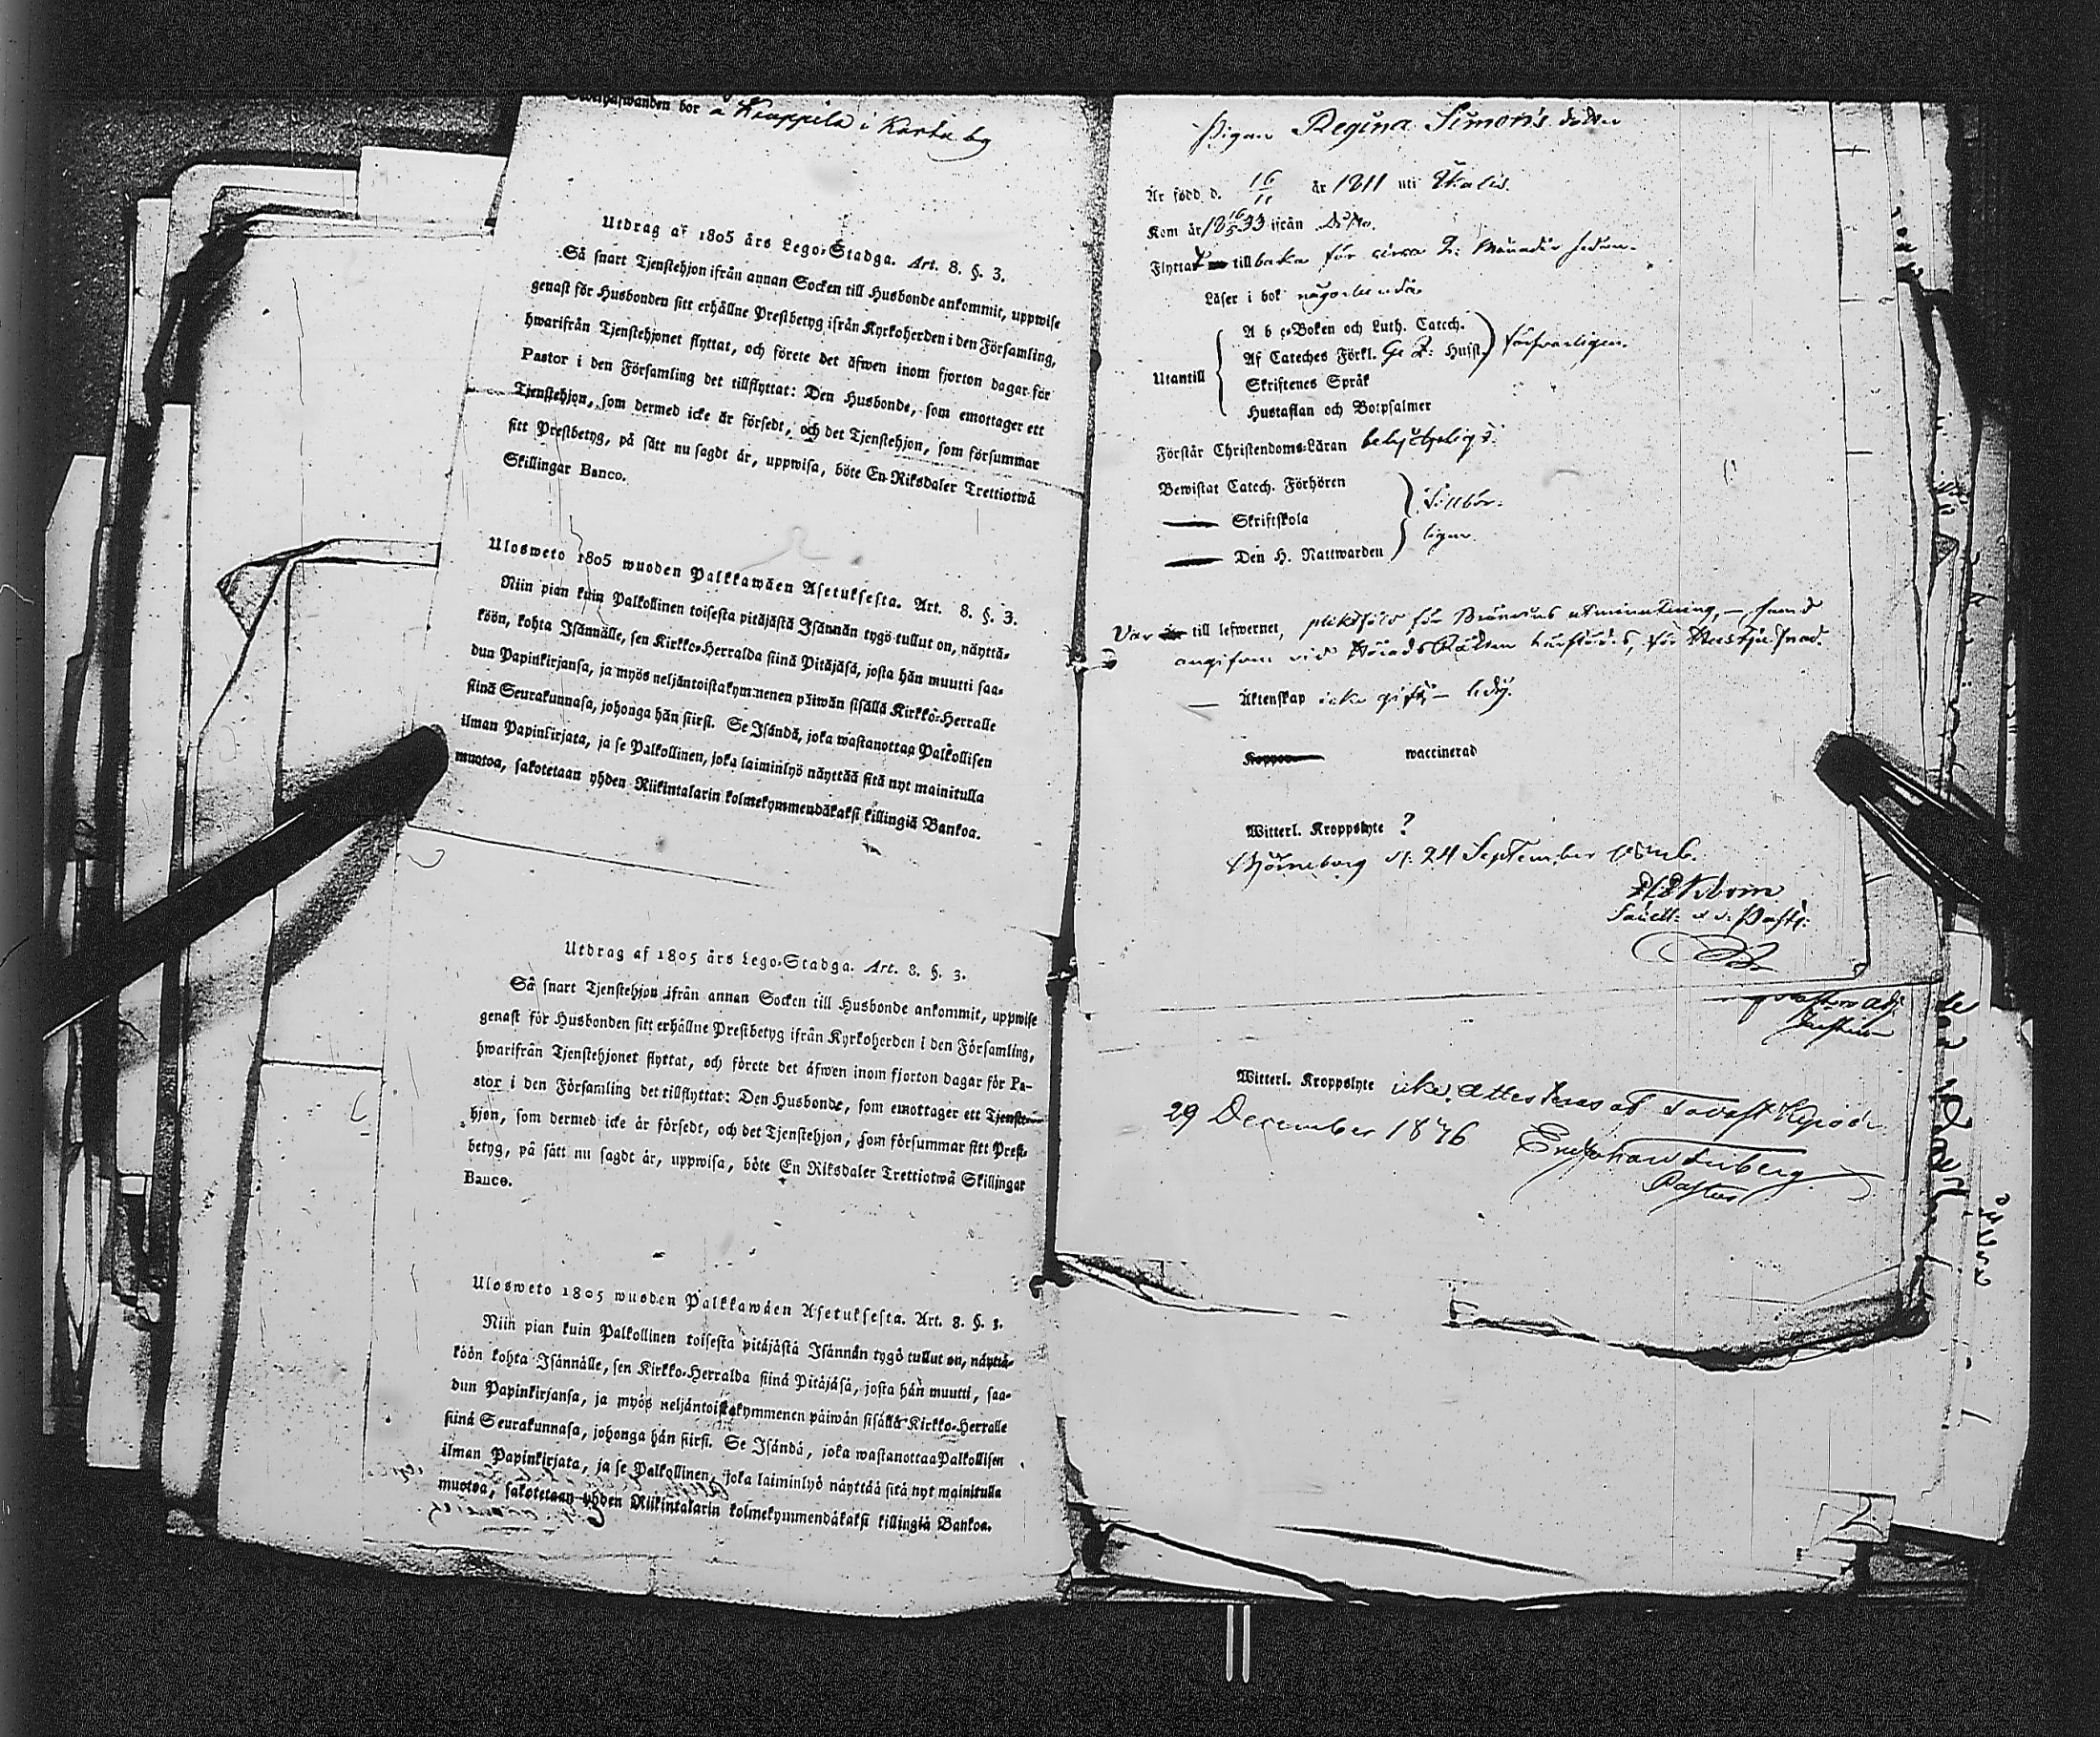 bor å Knappila i Karta by
Utdrag af 1805 års Lego-Stadga. Art. 8. §. 3.
Så snart Tjenstehjon ifrån annan Socken till Husbonde ankommit, uppwise
genast för Husbonden sitt erhållne Prestbetyg ifrån Kyrkoherden i den Församling,
hwarifrån Tjenstehjonet flyttat, och förete det äfwen inom fjorton dagar för
Pastor i den Församling det tillflyttat: Den Husbonde, som emottager ett
Tjenstehjon, som dermed icke är försedt, och det Tjenstehjon, som försummar
sitt Prestbetyg, på sätt nu sagdt är, uppwisa, böte En Riksdaler Trettiotwå
Skillingar Banco.
Ulosweto 1805 wuoden Palkkawäen Asetuksesta. Art. 8. §. 3.
Niin pian kuin Palkollinen toisesta pitäjästä Isännän tygö tullut on, näyttä-
köön, kohta Isännälle, sen Kirkko-Herralda siinä Pitäjäsä, josta hän muutti saa-
dun Papinkirjansa, ja myös neljäntoistakymmenen päiwän sisällä Kirkko-Herralle
siinä Seurakunnasa, johonga hän siirsi. Se Isändä, joka wastanottaa Palkollisen
ilman Papinkirjata, ja se Palkollinen, joka laiminlyö näyttää sitä nyt mainitulla
muotoa, sakotetaan yhden Riikintalarin kolmekymmendäkaksi killingiä Bankoa.
Utdrag af 1805 års Lego-Stadga. Art. 8. §. 3.
Så snart Tjenstehjon ifrån annan Socken till Husbonde ankommit, uppwise
genast för Husbonden sitt erhållne Prestbetyg ifrån Kyrkoherden i den Församling,
hwarifrån Tjenstehjonet flyttat, och förete det äfwen inom fjorton dagar för Pa-
stor i den Församling det tillflyttat: Den Husbonde, som emottager ett Tjenste-
hjon, som dermed icke är försedt, och det Tjenstehjon, som försummar sitt Prest-
betyg, på sätt nu sagdt är, uppwisa, böte En Riksdaler Trettiotwå Skillingar
Banco.
Ulosweto 1805 wuoden Palkkawäen Asetuksesta. Art. 8. §. 3.
Niin pian kuin Palkollinen toisesta pitäjästä Isännän tygö tullut on, näyttä-
köön kohta Isännälle, sen Kirkko-Herralda siinä Pitäjäsä, josta hän muutti, saa-
dun Papinkirjansa, ja myös neljäntoistakymmenen päiwän sisällä Kirkko-Herralle
siinä Seurakunnasa, johonga hän siirsi. Se Isändä, joka wastanottaa Palkollisen
ilman Papinkirjata, ja se Palkollinen, joka laiminlyö näyttää sitä nyt mainitulla
muotoa, sakotetaan yhden Riikintalarin kolmekymmendäkaksi killingiä Bankoa.
Pigan Regina Simons dotter
Är född d. 16/11 år 1811 uti Ikalis.
Kom år 18 33 ifrån Ditto.
Flyttat tillbaka för circa 2: Månader sedan.
Läser i bok någorlunda
Utantill
A b c-Boken och Luth. Catech.
Af Cateches Förkl. Ge 2: Hufst. försvarligen.
Skriftenes Språk
Hustaflan och Botpsalmer
Förstår Christendoms-Läran behjelpligt.
Bewistat Catech. Förhören
Skriftskola
Den H. Nattwarden
Tillbör-
ligen
Var till lefwernet, pliktfäld för Bränvins utminutering, —
angifven vid Härads Rätten
Äktenskap icke gift, — ledig.
waccinerad
Witterl. Kroppslyte ?
Björneborg d. 24 September
Witterl. Kroppslyte icke. Attesteras af Tavast Kyrö d.
29 December 1846
Pastor